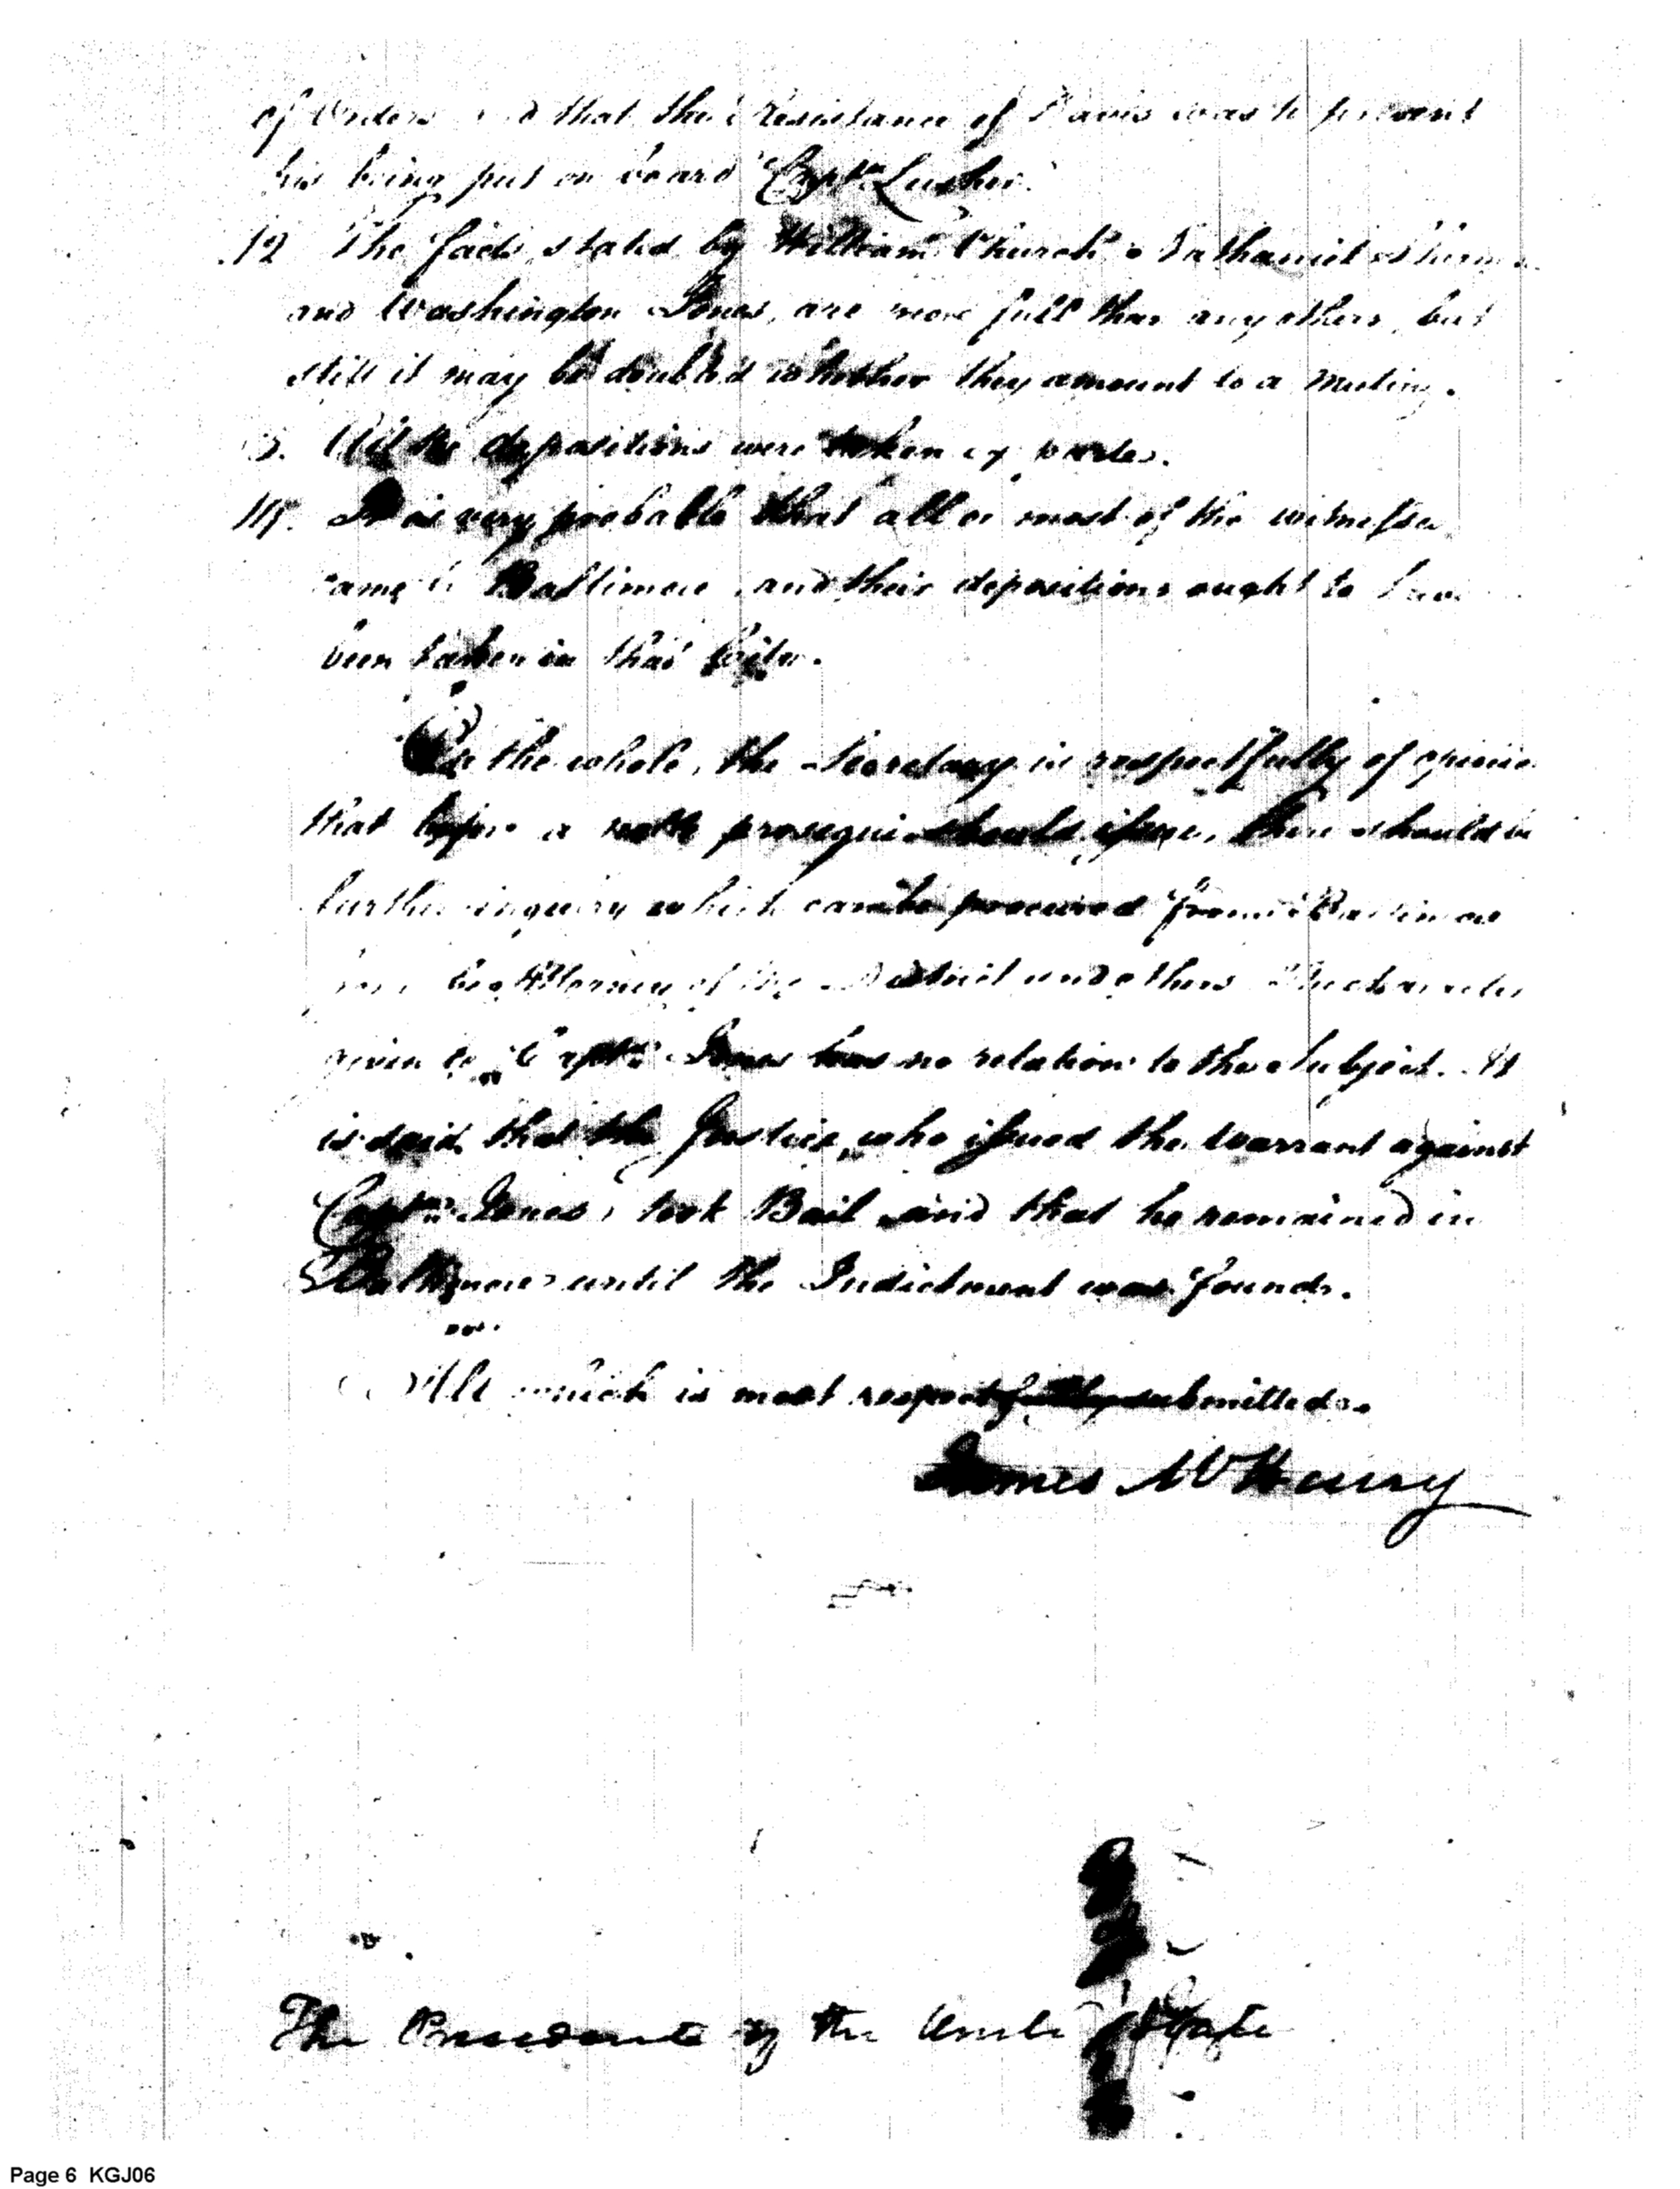 of Orders and that the Resistance of Davis was to prevent
his being put on board Capt.n Lusher.
12 The facts stated by William Church, Nathaniel
and Washington Jones, are more full than any others, but
still it may be doubted whether they amount to a Mutiny.
13. All the depositions were taken ex parte.
14. It is very probable that all or most of the witnesses
came to Baltimore, and their depositions ought to have
been taken in that City.
On the whole, the Secretary is respectfully of opinion
that before a nolle prosequi should issue, there should be
further inquiry which can be procured from Baltimore
from the Attorney of the District and others. The character
given to Capt.n Jones has no relation to the Subject. It
is said, that the Justice, who issued the Warrant against
Capt.n Jones, took Bail and that he remained in
Baltimore until the Indictment was found.
All which is most respectfully submitted.
James McHenry
The President of the United States
Page 6 KGJ06